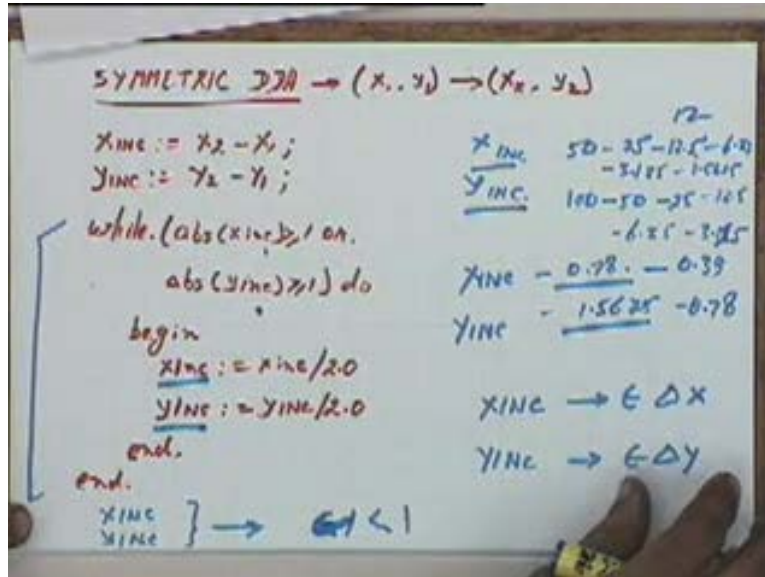 SYMMETRIC DDA → (x₁, y₁) → (x₂, y₂)
XINC := X₂ - X₁ ;
YINC := Y₂ - Y₁ ;
while (abs(xinc) ≥ 1 or
abs(yinc) ≥ 1) do
begin
xinc := xinc/2.0
YINC := YINC/2.0
end.
end.
XINC
YINC } → < 1
X INC 50 - 25 - 12.5 - 6.25
- 3.125 - 1.5625
Y INC. 100 - 50 - 25 - 12.5
- 6.25 - 3.125
XINC - 0.78 - 0.39
YINC - 1.5625 - 0.78
XINC → ∈ ΔX
YINC → ∈ ΔY